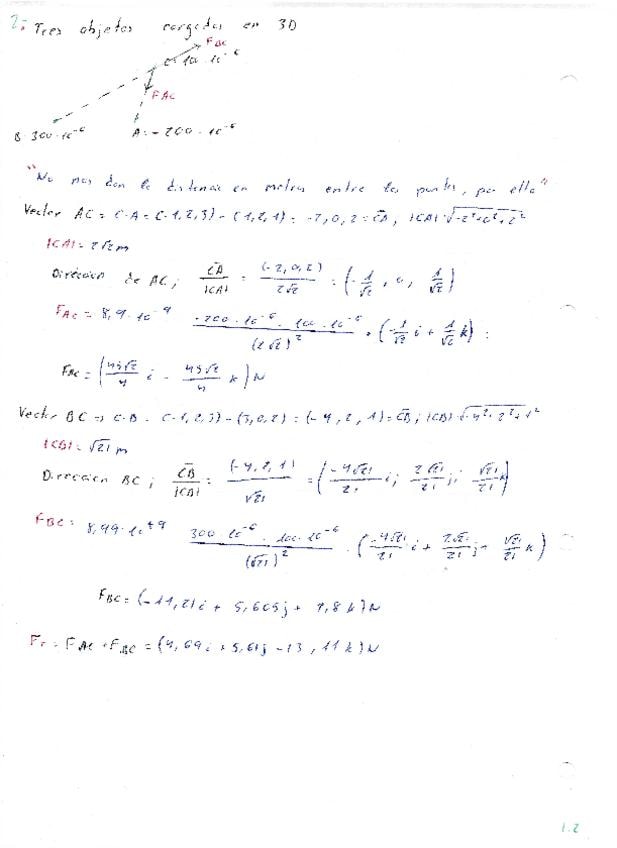 2-. Tres objetos cargados en 3D
F BC
C = 100 · 10^-6
F AC
B 300 · 10^-6 A = -200 · 10^-6
"No nos dan la distancia en metros entre los puntos, por ello"
Vector AC = C-A = (-1, 2, 3) - (1, 2, 1) = -2, 0, 2 = CA, |CA| √-2²+0²+2²
|CA| = 2√2 m
Direccion de AC; CA/|CA| = (-2, 0, 2)/2√2 = (-1/√2, 0, 1/√2)
F AC = 8,9 · 10^-9 -200 · 10^-6 · 100 · 10^-6/(2√2)² · (-1/√2 i + 1/√2 k) =
F AC = (45√2/4 i - 45√2/4 k) N
Vector BC => C-B = (-1, 2, 3) - (3, 0, 2) = (-4, 2, 1) = CB; |CB| √-4²+2²+1²
|CB| = √21 m
Direccion BC; CB/|CB| = (-4, 2, 1)/√21 = (-4√21/21 i; 2√21/21 j; √21/21 k)
F BC = 8,99 · 10^+9 300 · 10^-6 · 100 · 10^-6/(√21)² · (-4√21/21 i + 2√21/21 j + √21/21 k)
F BC = (-11,21 i + 5,605 j + 2,8 k) N
F T = F AC + F BC = (4,69 i + 5,61 j - 13,11 k) N
1.2